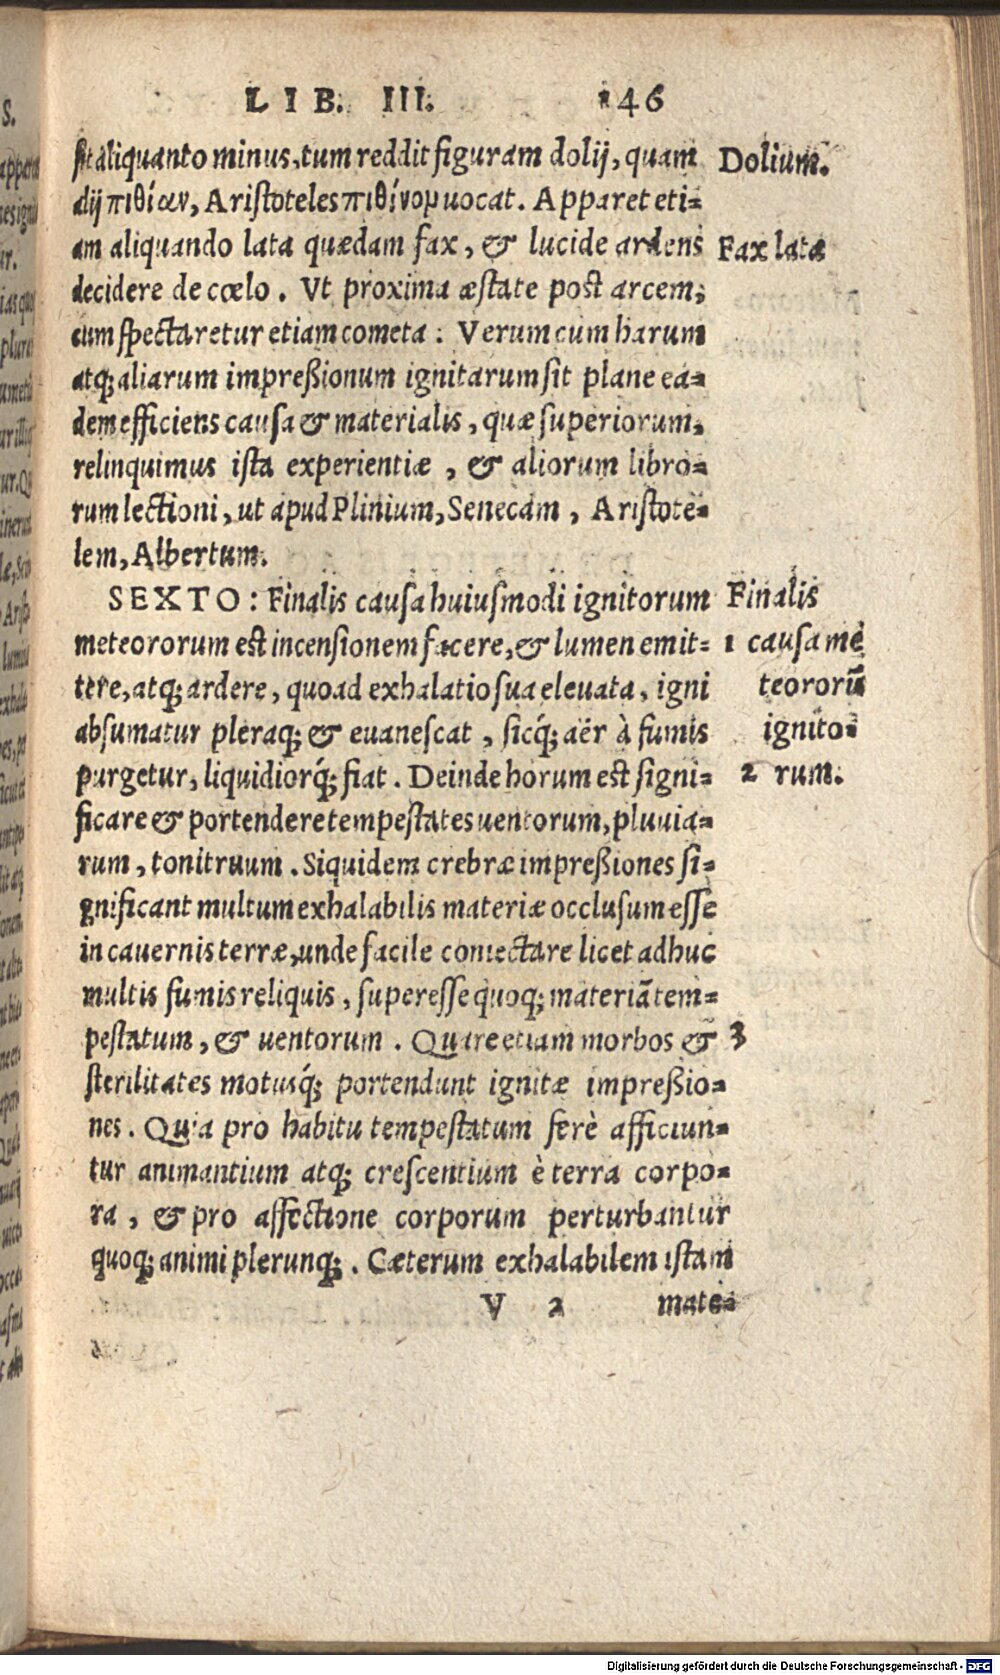 LIB. III. 146
sit aliquanto minus, tum reddit figuram dolij, quam Dolium.
alij πιθίαν, Aristoteles πιθίνομ uocat. Apparet eti-
am aliquando lata quædam fax, & lucide ardens Fax lata
decidere de cœlo. Vt proxima æstate post arcem,
cum spectaretur etiam cometa: Verum cum harum
atq; aliarum impreßionum ignitarum sit plane ea-
dem efficiens causa & materialis, quæ superiorum,
relinquimus ista experientiæ, & aliorum libro-
rum lectioni, ut apud Plinium, Senecam, Aristote-
lem, Albertum.
SEXTO: Finalis causa huiusmodi ignitorum Finalis
meteororum est incensionem facere, & lumen emit- 1 causa me
tere, atq; ardere, quoad exhalatio sua eleuata, igni teororū
absumatur pleraq; & euanescat, sicq́; aër à fumis ignito-
purgetur, liquidiorq́; fiat. Deinde horum est signi- 2 rum.
ficare & portendere tempestates uentorum, pluuia-
rum, tonitruum. Siquidem crebræ impreßiones si-
gnificant multum exhalabilis materiæ occlusum esse
in cauernis terræ, unde facile coniectare licet adhuc
multis fumis reliquis, superesse quoq; materiā tem-
pestatum, & uentorum. Quare etiam morbos & 3
sterilitates motusq́; portendunt ignitæ impreßio-
nes. Quia pro habitu tempestatum ferè afficiun-
tur animantium atq; crescentium è terra corpo-
ra, & pro affectione corporum perturbantur
quoq; animi plerunq;. Cæterum exhalabilem istam
V 2 mate-
Digitalisierung gefördert durch die Deutsche Forschungsgemeinschaft - DFG